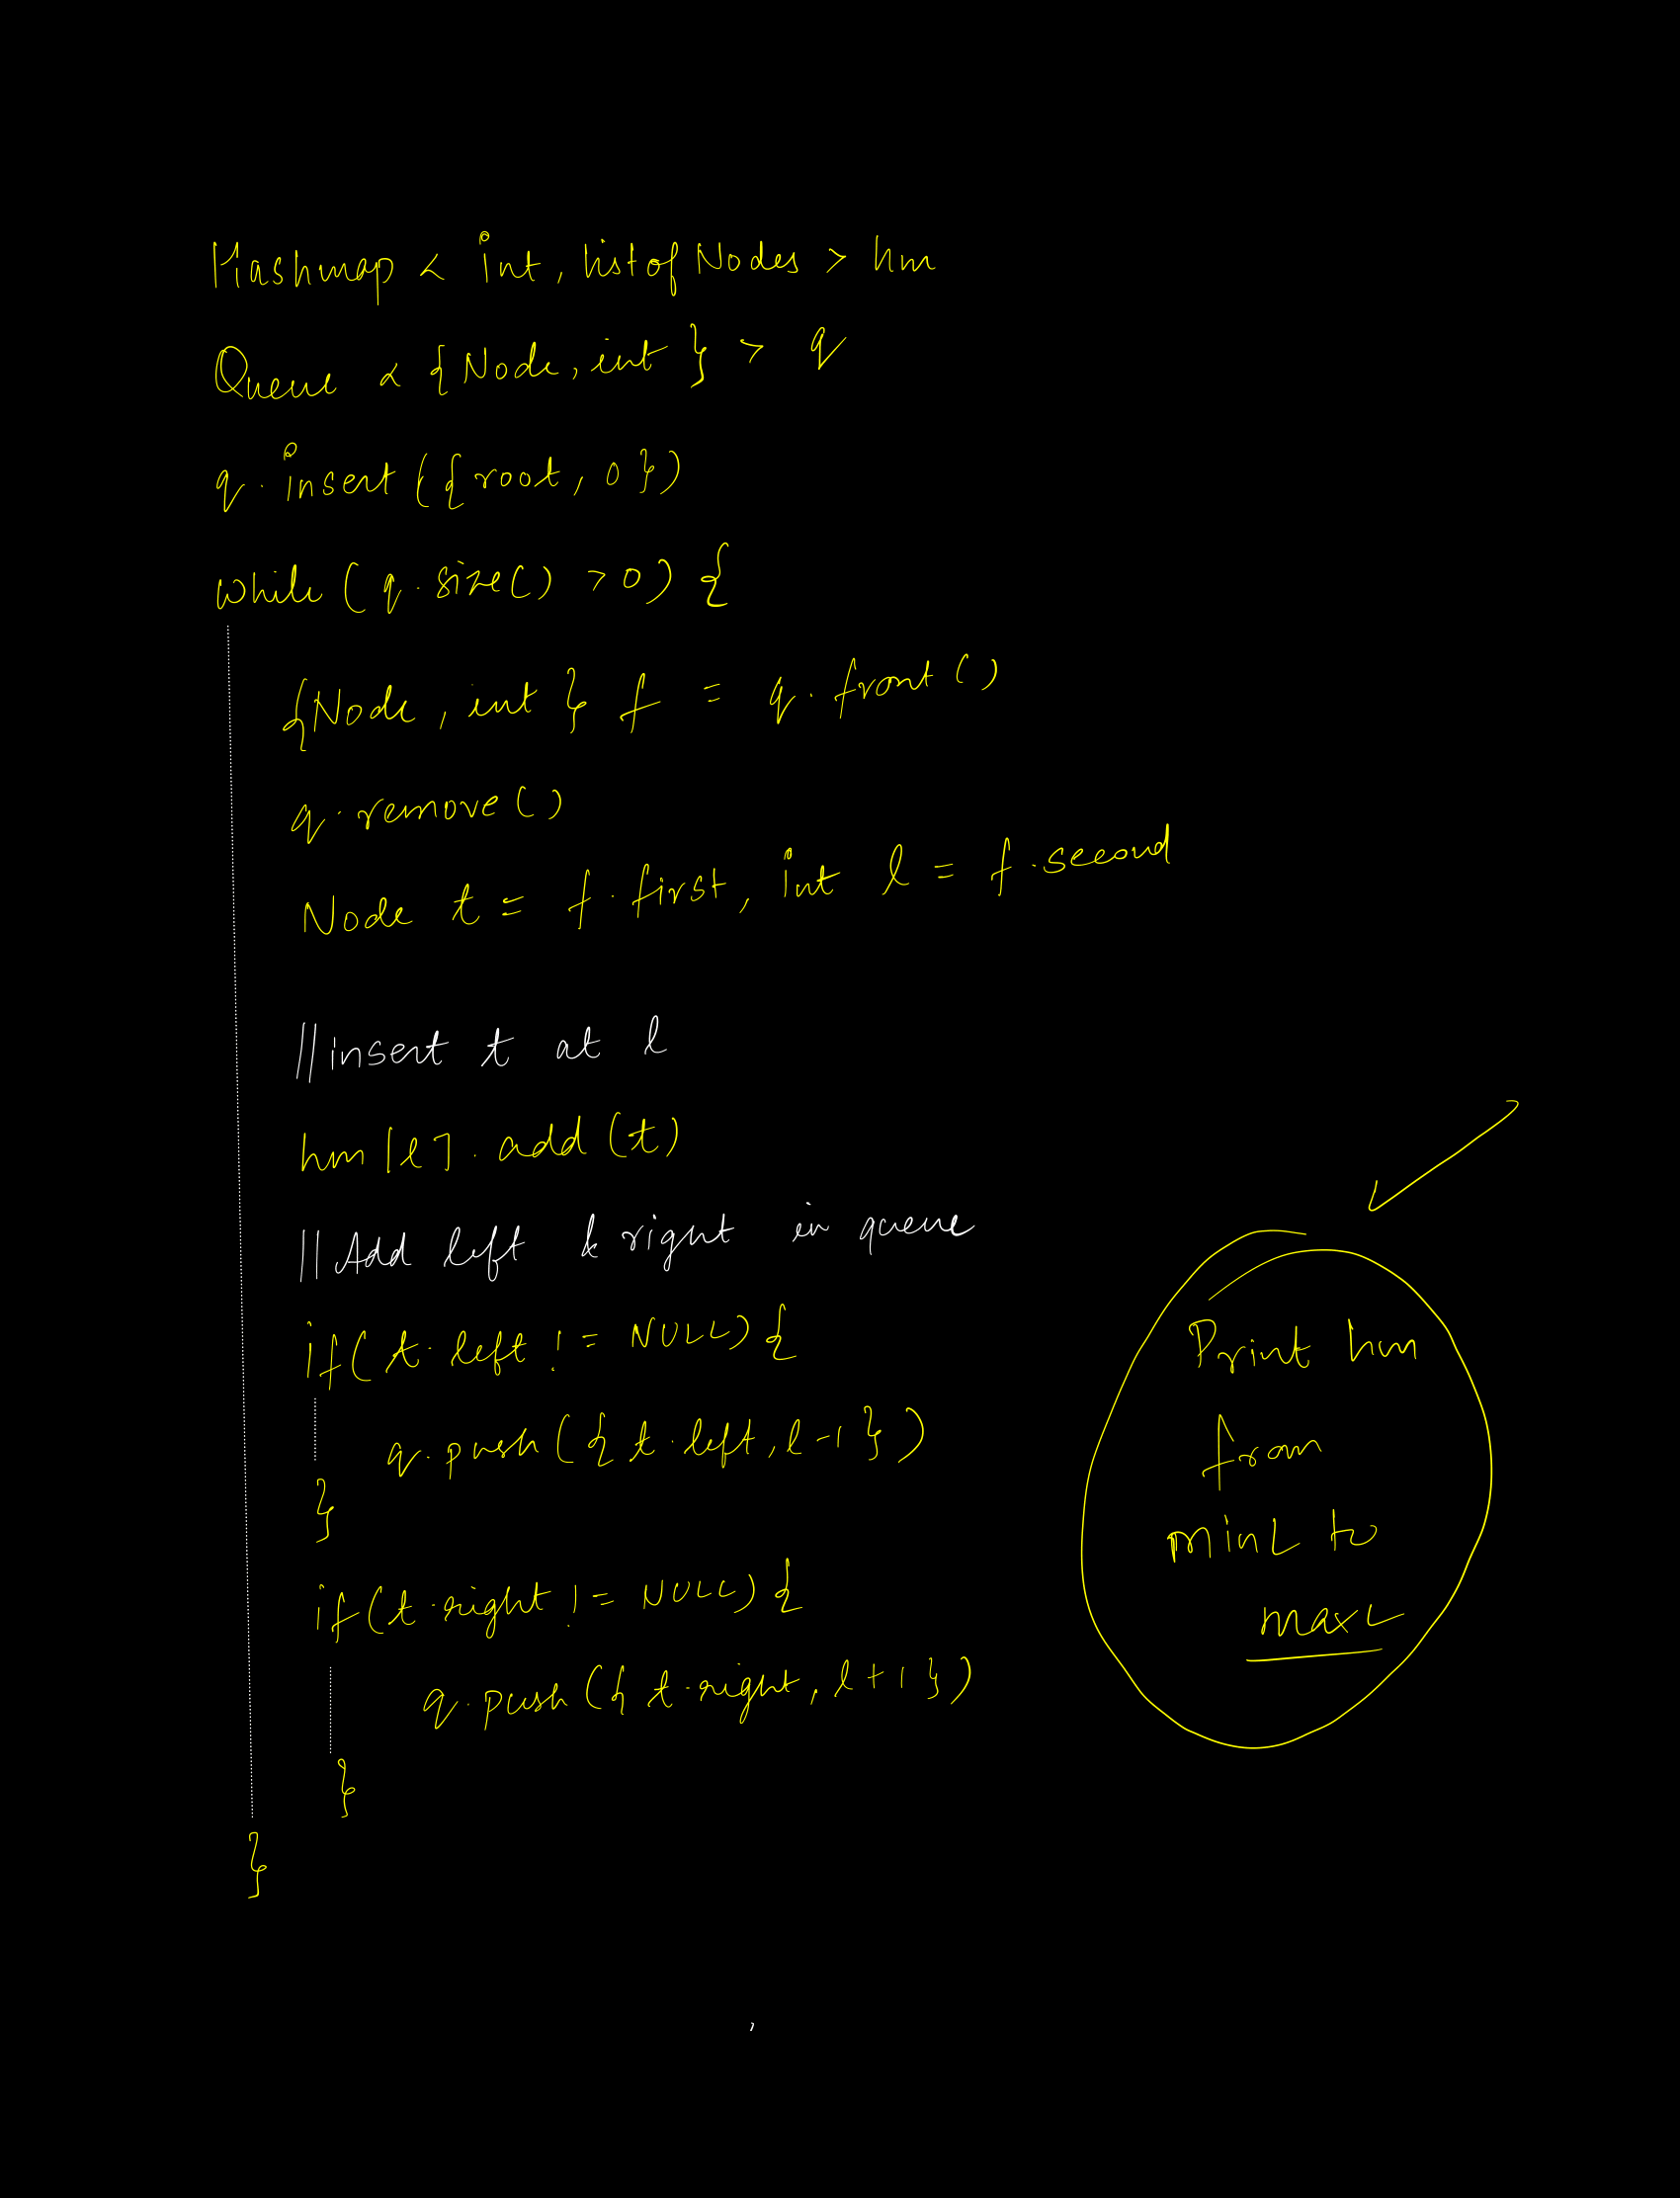 Hashmap < int, list of Nodes > hm
Queue < {Node, int } > q
q. insert ({root, 0})
while (q. size() >0) {
{Node, int } f = q. front()
q. remove()
Node t = f. first, int l = f. second
//insert t at l
hm[l]. add (t)
//Add left & right in queue
if( t. left != NULL) {
q. push ({ t. left, l-1 })
}
if( t. right != NULL) {
q. push ({ t. right, l+1 })
}
}
Print hm
from
minL to
maxL